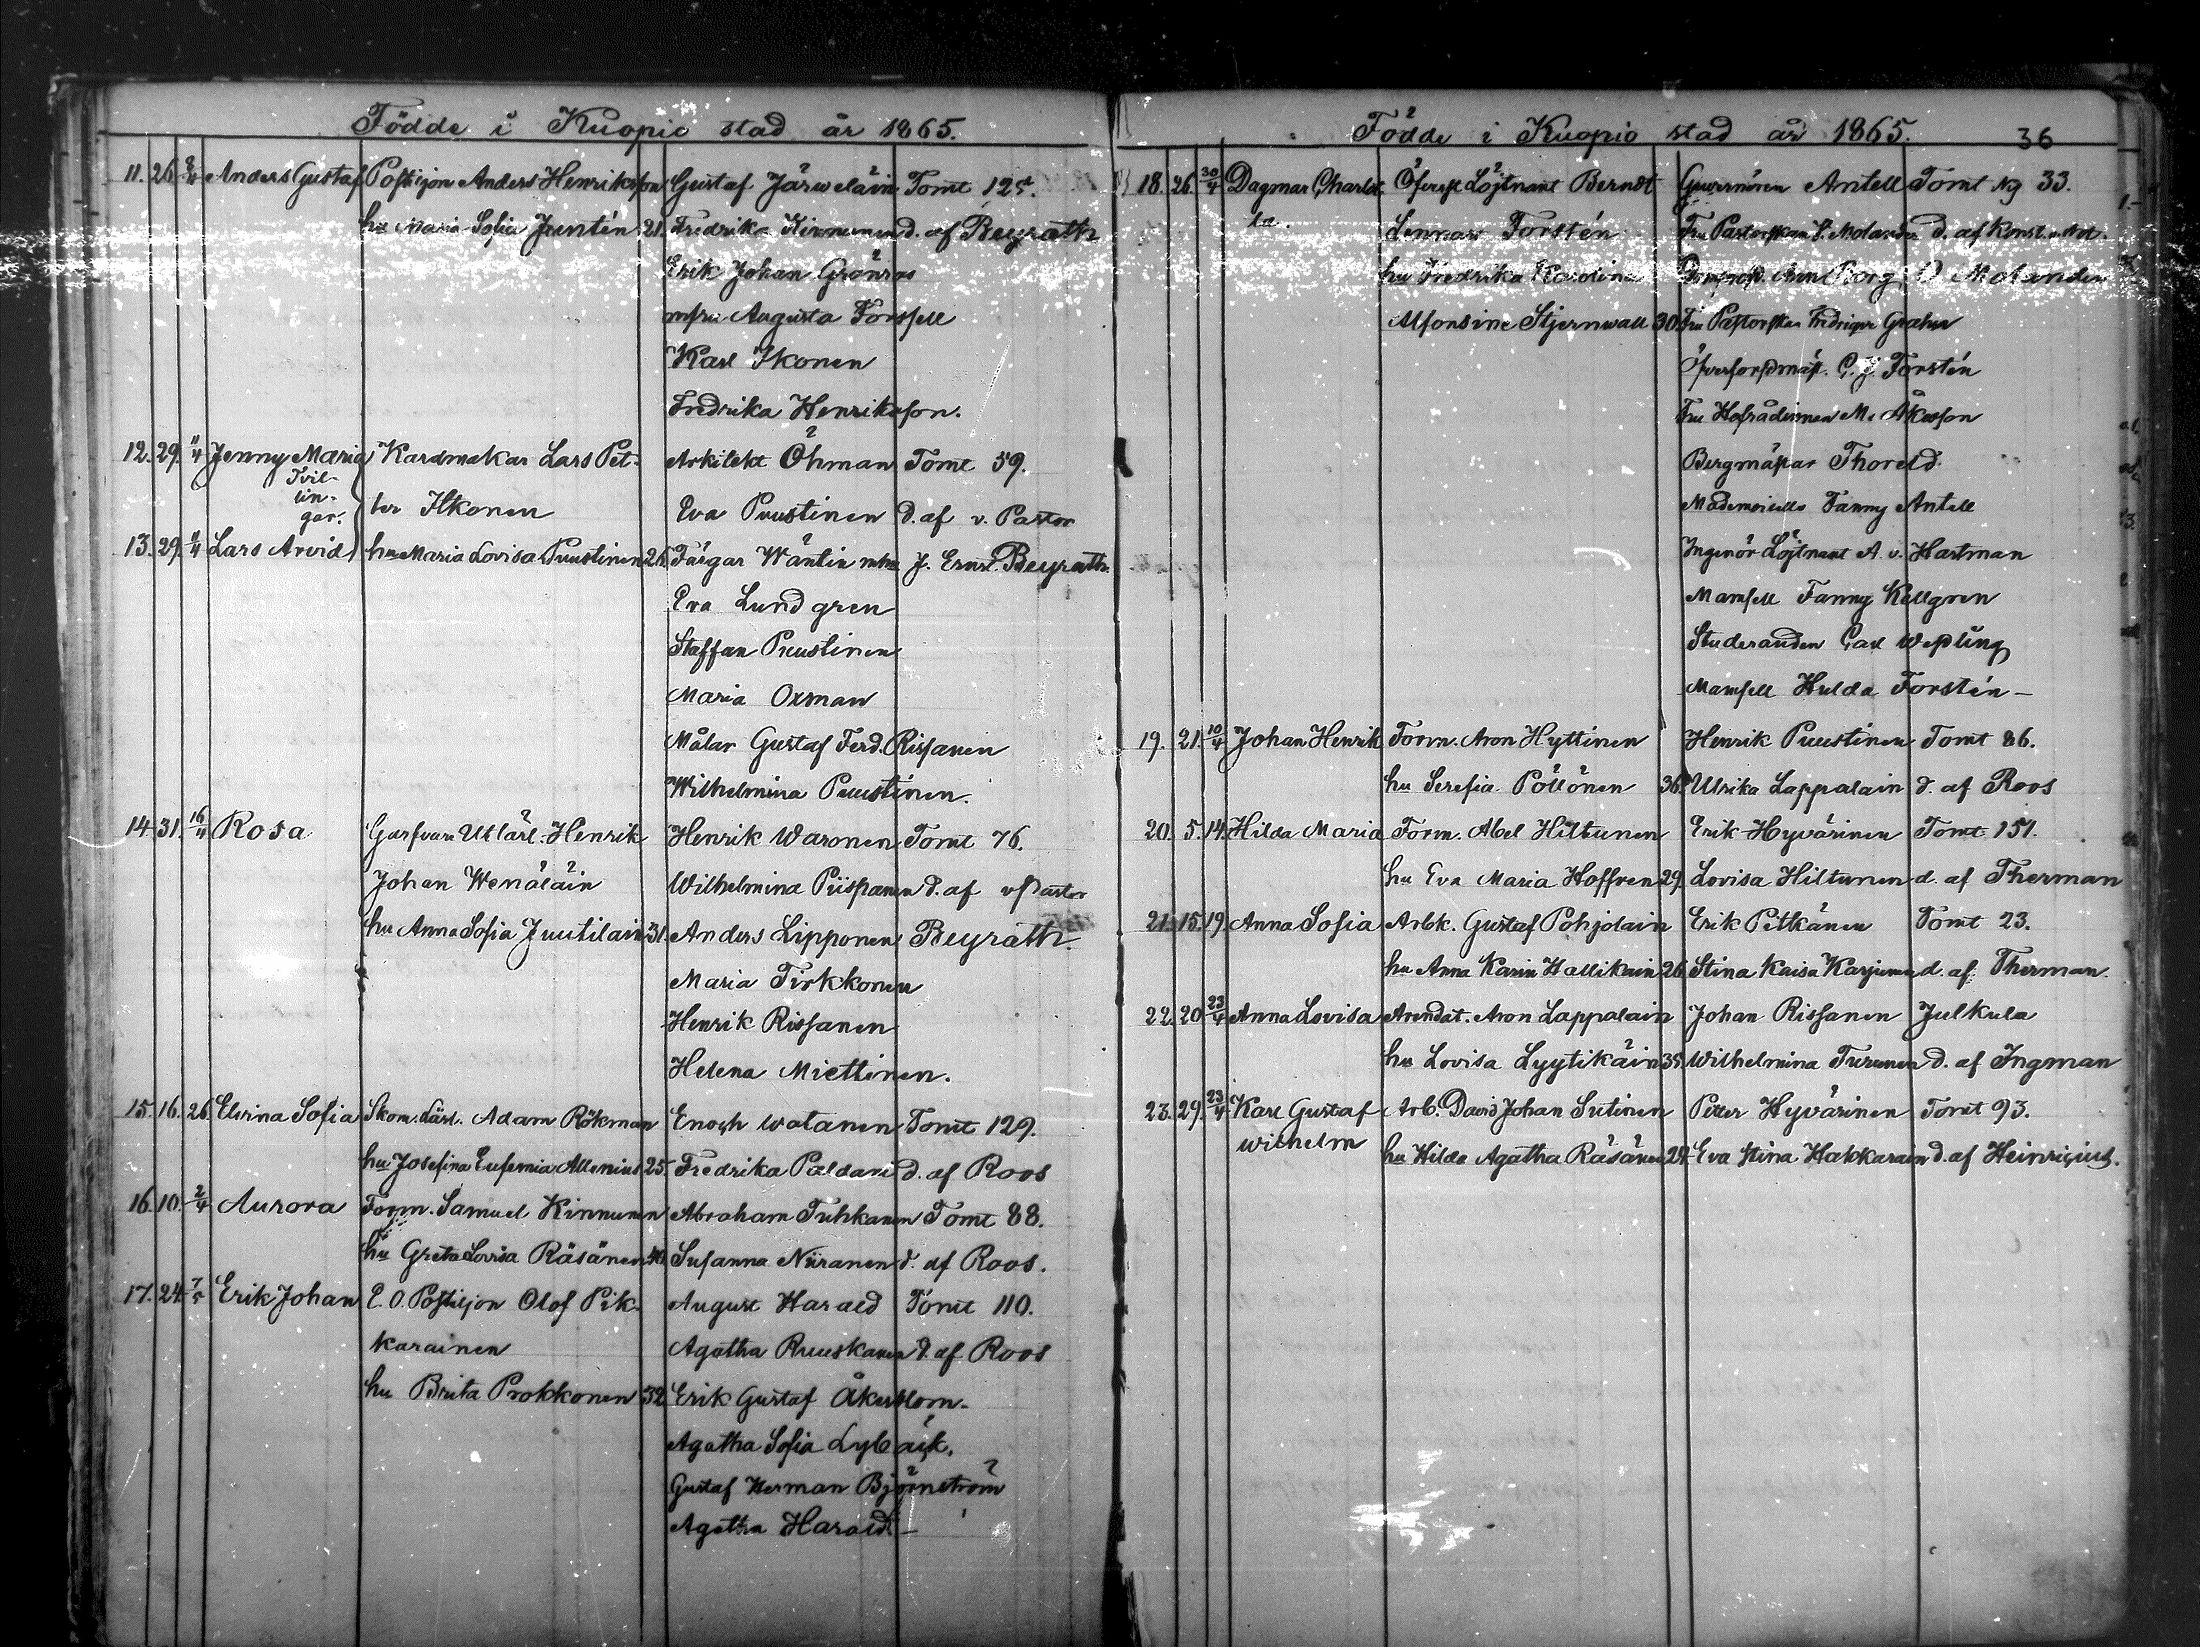 Födde i Kuopio stad år 1865.
11. 26. Anders Gustaf Postiljon Anders Henriksson Gustaf Järweläin Tomt 125.
hu Maria Sofia Juntén 21. Fredrika Kinnunen d. af Beyrath
Erik Johan Grönros
mfru Augusta Forssell
Karl Ikonen
Fredrika Henriksson.
12. 29. 11/4 Jenny Maria Kardmakar Lars Pet- Arkitekt Öhman Tomt 59.
Tvil-
lin-
gar.
ter Itkonen Eva Puustinen d. af v. Pastor
13. 29. 11/4 Lars Arvid hu Maria Lovisa Puustinen 26. Färgar Wäntin J. Ernst Beyrath.
Eva Lundgren
Staffan Puustinen
Maria Oxman
Målar Gustaf Ferd. Rissanen
Wilhelmina Puustinen.
14. 31. 16/4 Rosa Garfvare Utlärl. Henrik Henrik Waronen Tomt 76.
Johan Wenäläin Wilhelmina Piispanen d. af v Pastor
hu Anna Sofia Juutilain 31. Anders Lipponen Beyrath.
Maria Tirkkonen
Henrik Rissanen
Helena Miettinen.
15. 16. 26. Elvina Sofia Skom. Lärl. Adam Rökman Enoch Watanen Tomt 129.
hu Josefina Eufemia Allenius 25. Fredrika Paldani d. af Roos
16. 10. 2/4 Aurora Form. Samuel Kinnunen Abraham Tuhkanen Tomt 88.
hu Greta Lovisa Räsänen 40. Susanna Niiranen d. af Roos.
17. 24. 7/5 Erik Johan E. O. Postiljon Olof Pik- August Harald Tomt 110.
karainen Agatha Ruuskanen d. af Roos
hu Brita Prokkonen 32. Erik Gustaf Åkerblom.
Agatha Sofia Lybäck.
Gustaf Herman Björnström
Agatha Harald.—
Födde i Kuopio stad år 1865. 36
18. 26. 30/4 Dagmar Charlot Öfverst Löjtnant Berndt Guvernören Antell Tomt No 33.
ta. Lennart Forstén Fru Pastorskan S. Molander d. af Konst. v. Not.
hu Fredrika Karolina Borg Molander
Alfonsine Stjernwall 30. Fru Pastorskan Grahn
Öfverforstmäst. C. J. Forstén
Fru Hofrådinnan M. Åkesson
Bergmästar Thoreld
Mademoiselle Fanny Antell
Ingenör Löjtnant A. v. Hartman
Mamsell Fanny Kellgren
Studeranden Carl Wepling
Mamsell Hulda Forstén—
19. 21. 10/4 Johan Henrik Form. Aron Hyttinen Henrik Puustinen Tomt 86.
hu Serefia Pöllönen 36. Ulrika Lappalain d. af Roos
20. 5. 14. Hilda Maria Form. Abel Hiltunen Erik Hyvärinen Tomt 151.
hu Eva Maria Hoffren 29. Lovisa Hiltunen d. af Therman
21. 15. 19. Anna Sofia Arbk. Gustaf Pohjolain Erik Pitkänen Tomt 23.
hu Anna Karin Hallikain 26. Stina Kaisa Karjunen d. af Therman.
22. 20 23/4 Anna Lovisa Arendat. Aron Lappalain Johan Rissanen Julkula
hu Lovisa Lyytikäin 35. Wilhelmina Turunen d. af Ingman
23. 29. 23/4 Karl Gustaf Arb. David Johan Sutinen Petter Hyvärinen Tomt 93.
Wilhelm hu Hilda Agatha Räsänen 24. Eva Stina Hakkarain d. af Heinricius.